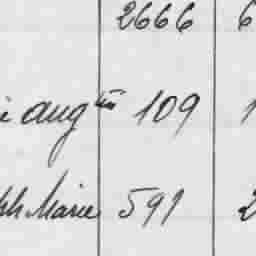 2666 6
aug^tin 109 1
ph Marie 591 2